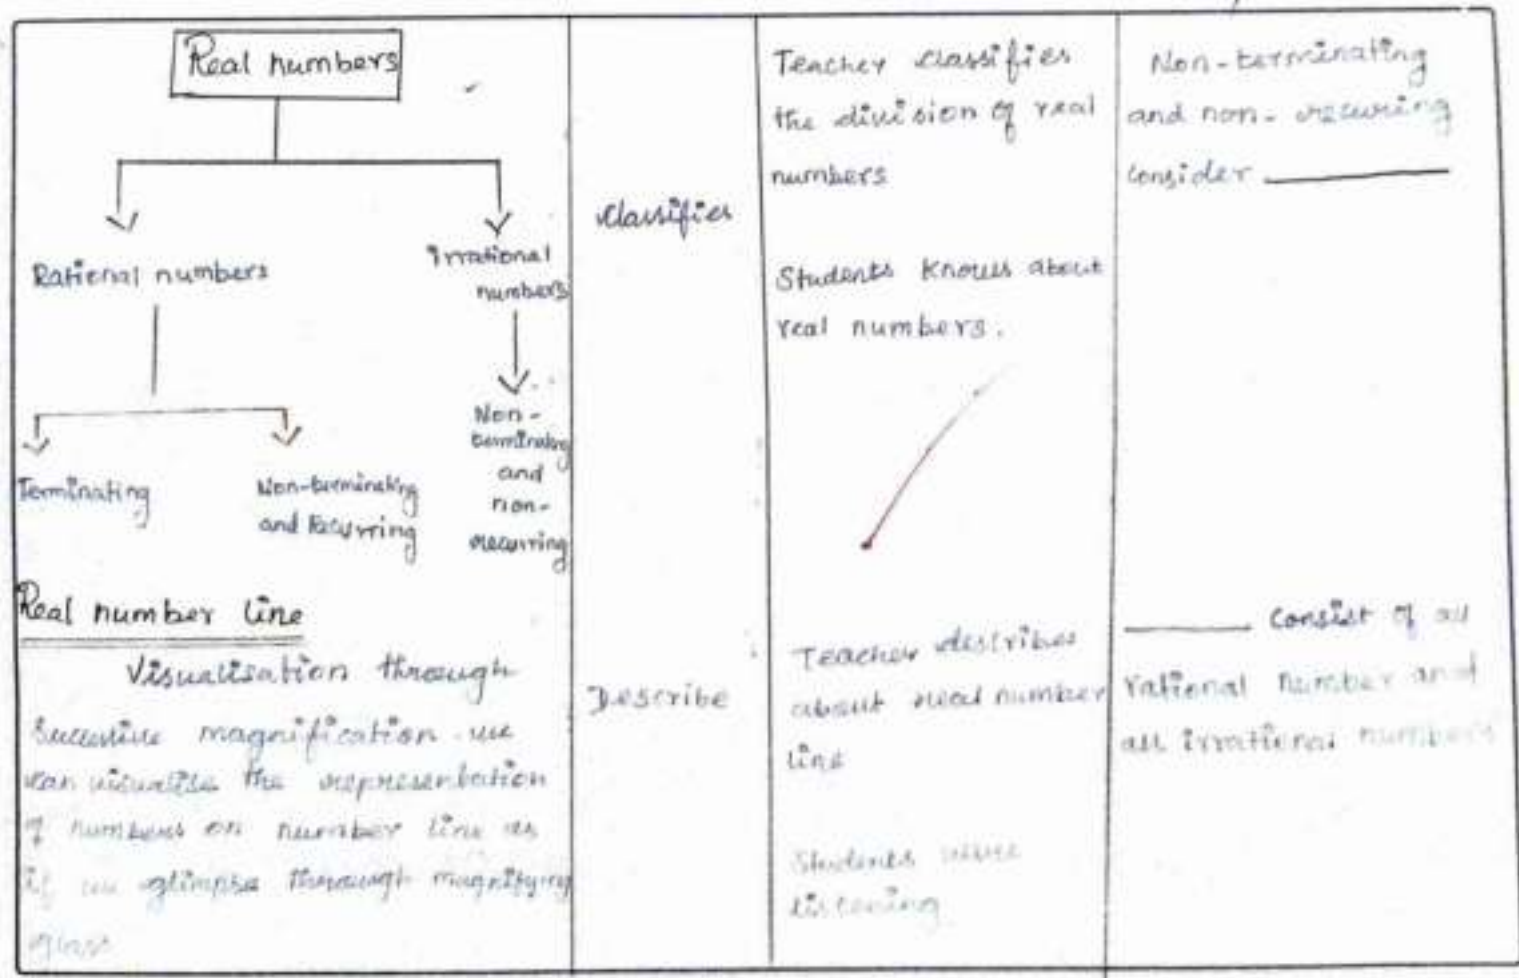 Real numbers
Rational numbers
Irrational
numbers
Terminating
Non-terminating
and Recurring
Non-
terminating
and
non-
recurring
Real number line
Visualisation through
successive magnification we
can visualise the representation
of numbers on number line as
if we glimpse through magnifying
glass
Classifies
Describe
Teacher classifies
the division of real
numbers
Students knows about
real numbers.
Teacher describes
about real number
line
Students were
listening
Non-terminating
and non-recuring
consider
consist of all
rational number and
all irrational numbers